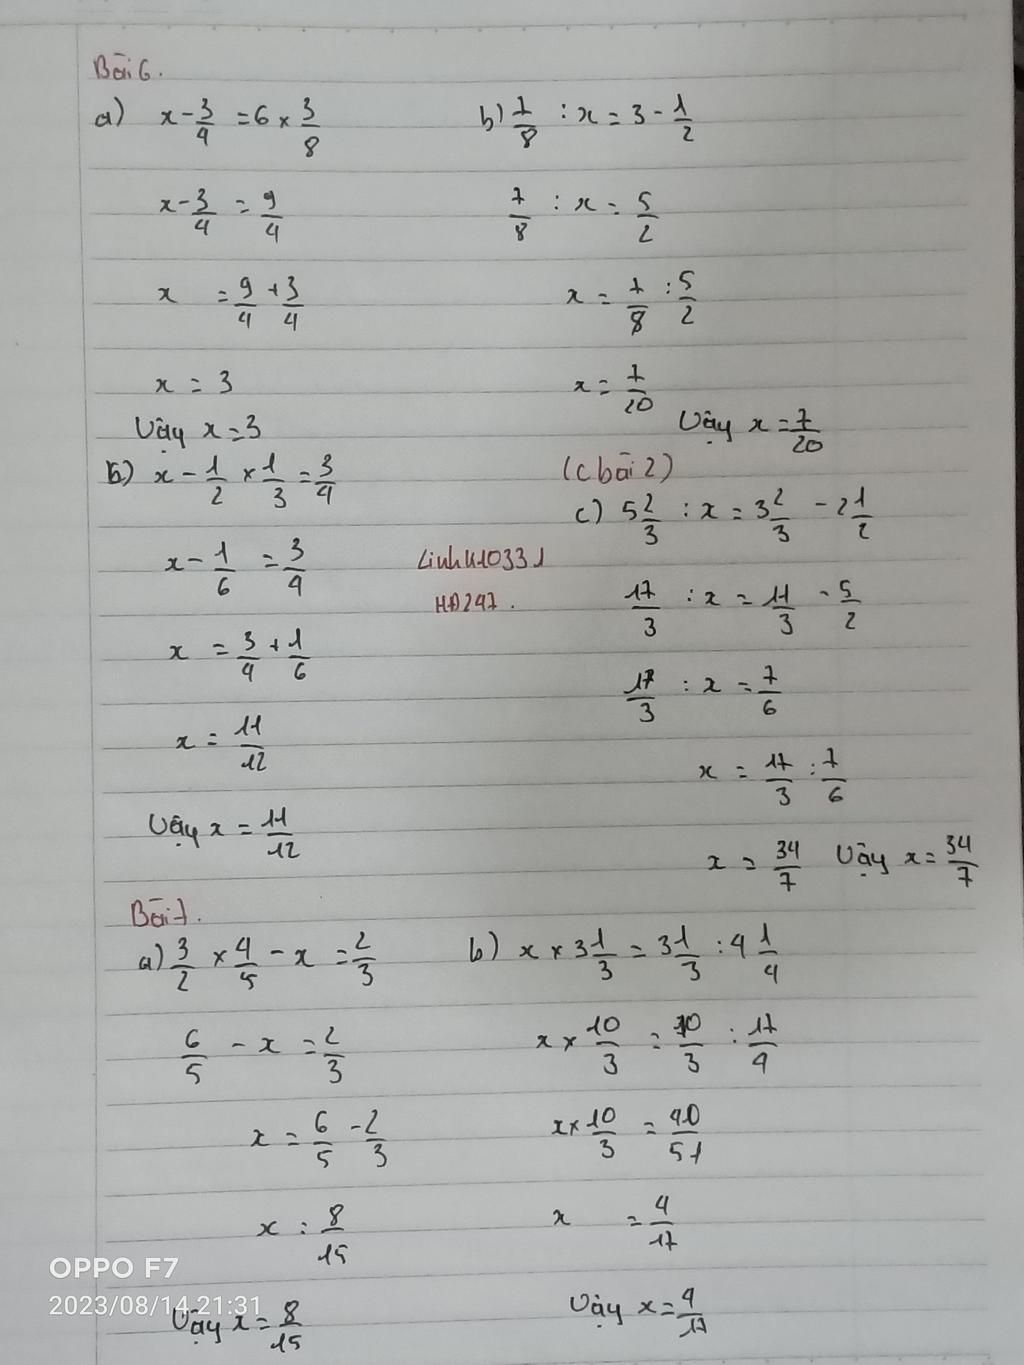 Bài 6.
a) x - 3/4 = 6 × 3/8
x - 3/4 = 9/4
x = 9/4 + 3/4
x = 3
Vậy x = 3
b) 7/8 : x = 3 - 1/2
7/8 : x = 5/2
x = 7/8 : 5/2
x = 7/20
Vậy x = 7/20
b) x - 1/2 × 1/3 = 3/4
x - 1/6 = 3/4
x = 3/4 + 1/6
x = 11/12
Vậy x = 11/12
LinhK10331
HĐ247.
(c bài 2)
c) 5 2/3 : x = 3 2/3 - 2 1/2
17/3 : x = 11/3 - 5/2
17/3 : x = 7/6
x = 17/3 : 7/6
x = 34/7 Vậy x = 34/7
Bài 7.
a) 3/2 × 4/5 - x = 2/3
6/5 - x = 2/3
x = 6/5 - 2/3
x = 8/15
Vậy x = 8/15
b) x × 3 1/3 = 3 1/3 : 4 1/4
x × 10/3 = 10/3 : 17/4
x × 10/3 = 40/51
x = 4/17
Vậy x = 4/17
OPPO F7
2023/08/14 21:31